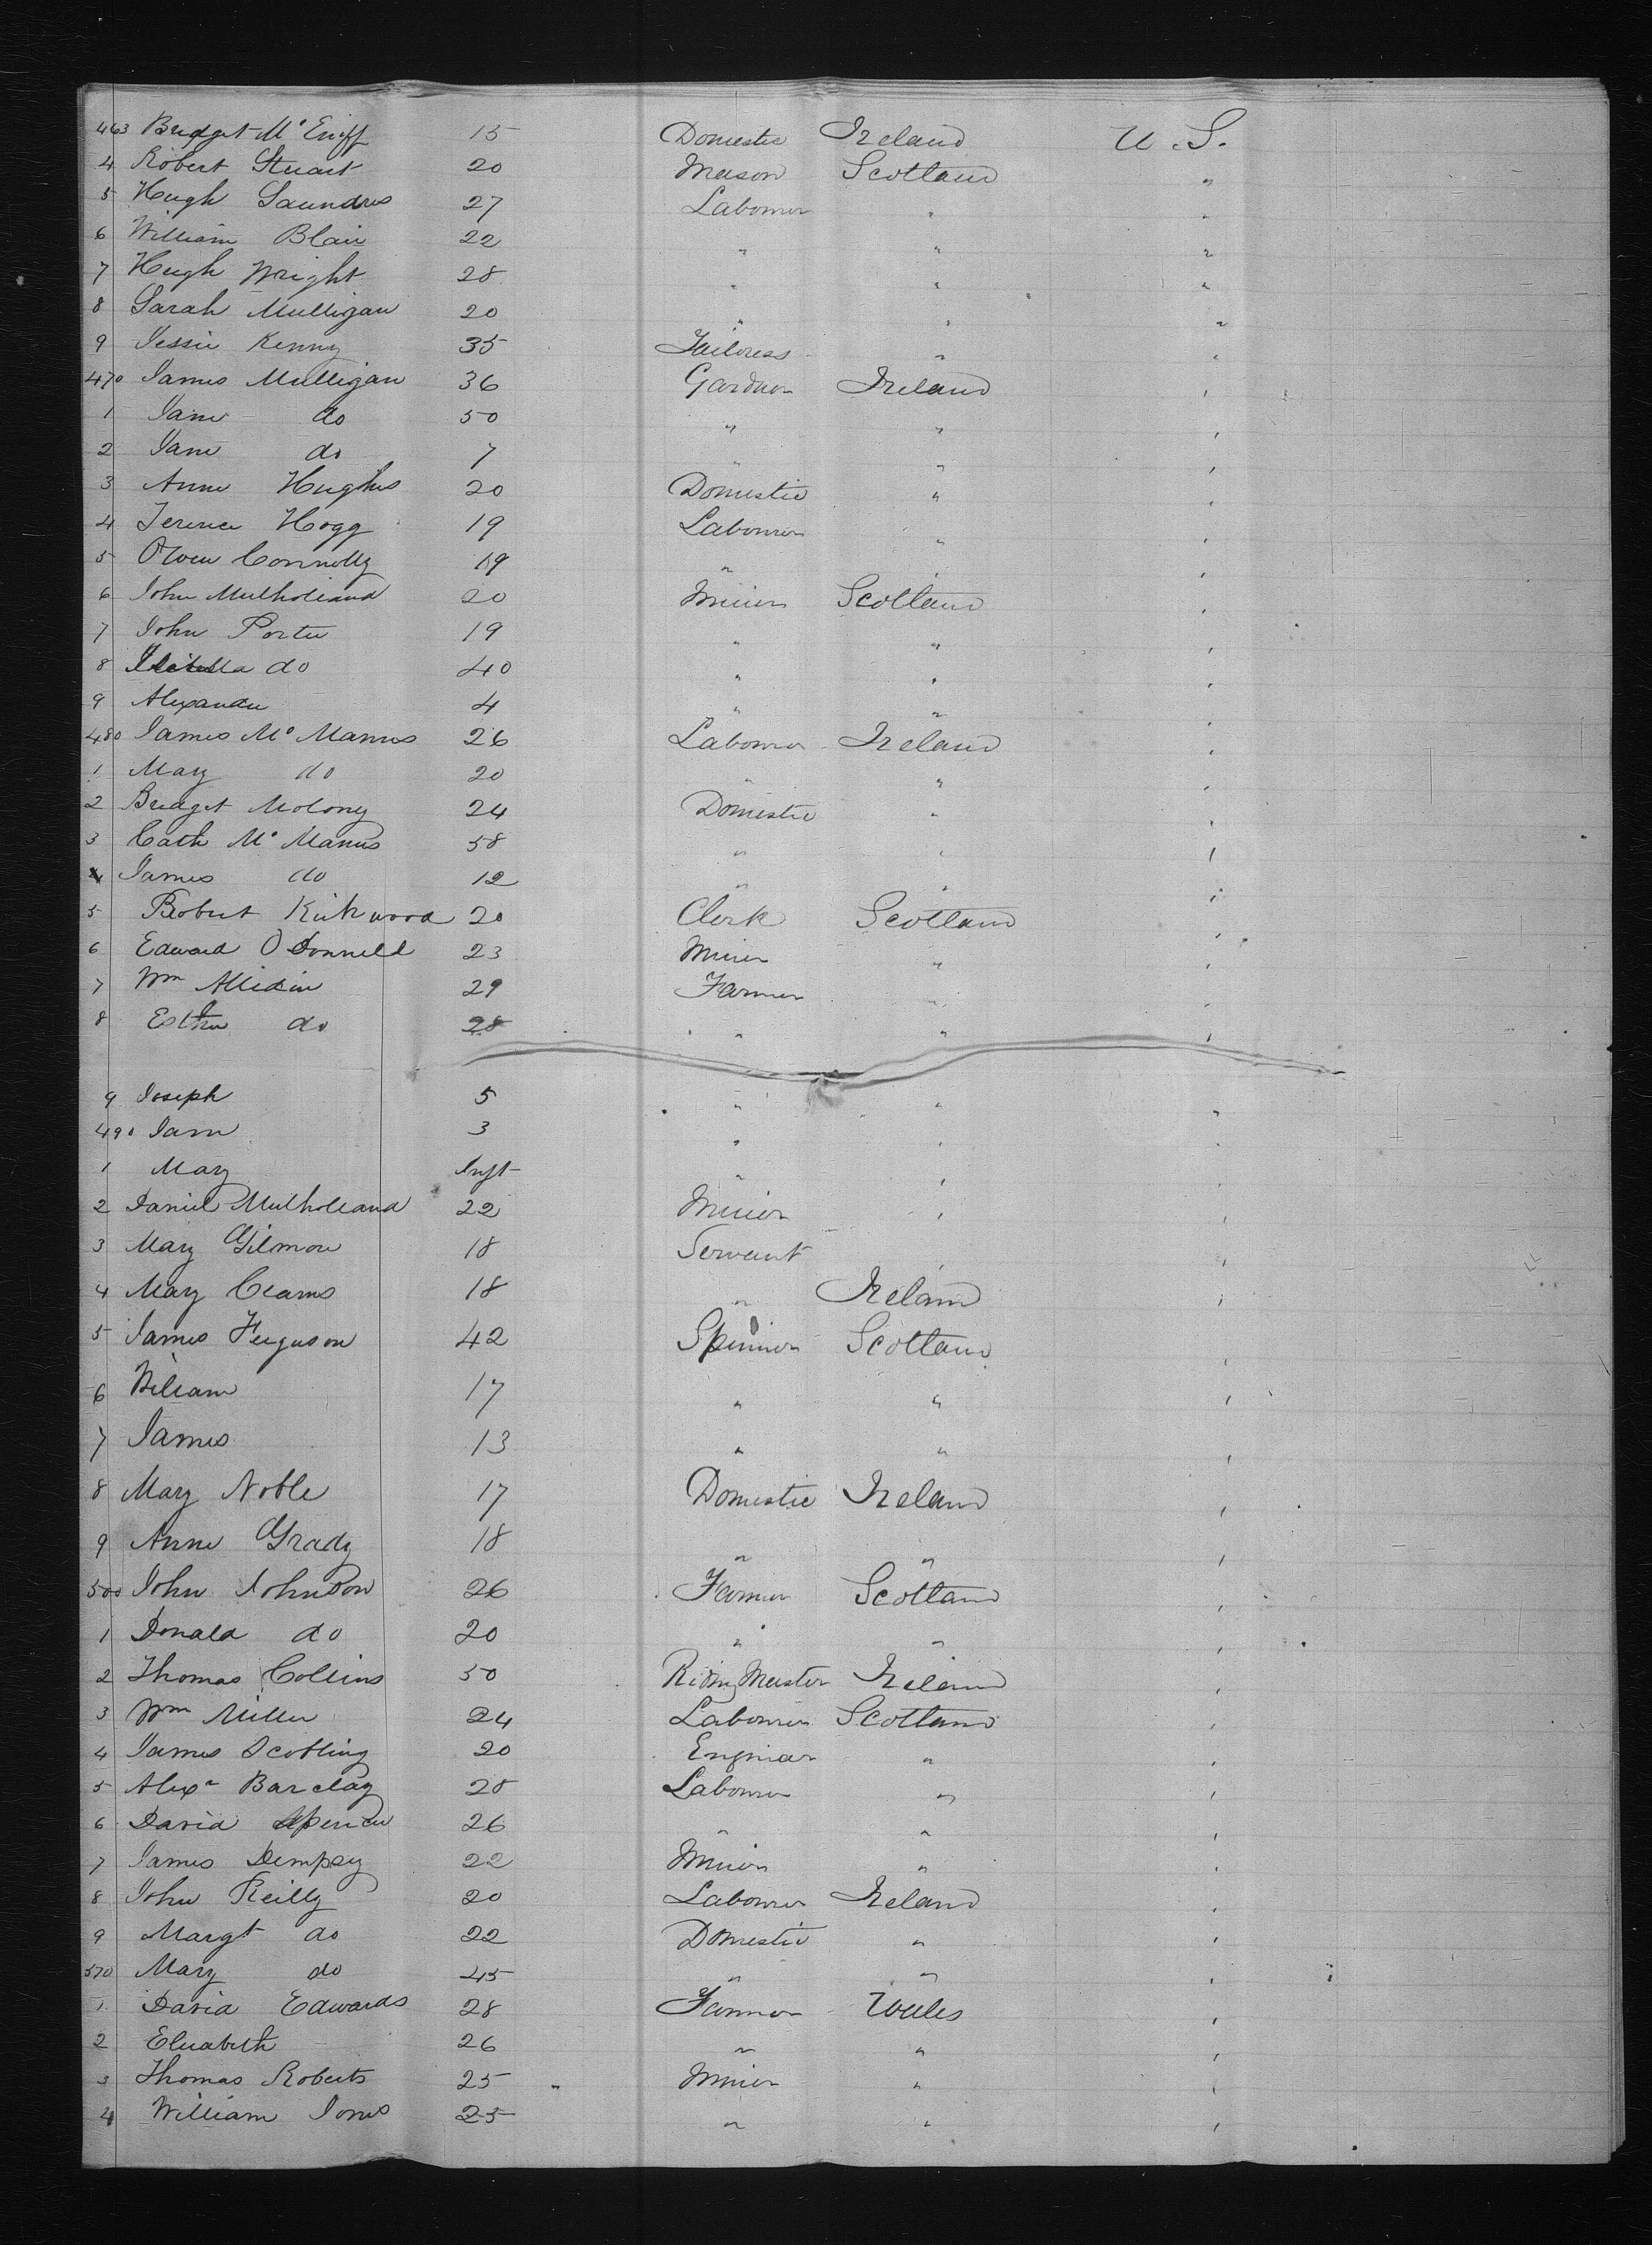 463 Bridget McEniff 15 Domestic Ireland U.S.
4 Robert Stuart 20 Mason Scotland "
5 Hugh Saundres 27 Labourer " "
6 William Blair 22 " " "
7 Hugh Wright 28 " " "
8 Sarah Mulligan 20 " " "
9 Jessie Kenny 35 Tailoress " "
470 James Mulligan 36 Gardner Ireland "
1 Jane do 50 " " "
2 Jane do 7 " " "
3 Anne Hughes 20 Domestic " "
4 Terence Hogg 19 Labourer " "
5 Owen Connolly 19 " " "
6 John Mulholland 20 Miner Scotland "
7 John Porter 19 " " "
8 do 40 " " "
9 Alexander 4 " " "
480 James McManus 26 Labourer Ireland "
1 Mary do 20 " " "
2 Bridget Molony 24 Domestic " "
3 Cath McManus 58 " " "
4 James do 12 " " "
5 Robert Kirkwood 20 Clerk Scotland "
6 Edward O Donnell 23 Miner " "
7 Wm 29 Farmer " "
8 Esther do 28 " " "
9 Joseph 5 " " "
490 Jane 3 " " "
1 Mary Inft " " "
2 Daniel Mulholland 22 Miner " "
3 Mary Gilmore 18 Servant " "
4 Mary Cearns 18 " Ireland "
5 James Ferguson 42 Spinner Scotland "
6 William 17 " " "
7 James 13 " " "
8 Mary Noble 17 Domestic Ireland "
9 Anne Grady 18 " " "
500 John Johnson 26 Farmer Scotland "
1 Donald do 20 " " "
2 Thomas Collins 50 Riding Master Ireland "
3 Wm Miller 24 Labourer Scotland "
4 James Scobling 20 Enginear " "
5 Alexr Barclay 28 Labourer " "
6 David Spencer 26 " " "
7 James Dempsey 22 Miner " "
8 John Reilly 20 Labourer Ireland "
9 Margt do 22 Domestic " "
510 Mary do 45 " " "
1 David Edwards 28 Farmer Wales "
2 Elizabeth 26 " " "
3 Thomas Roberts 25 Miner " "
4 William Jones 25 " " "